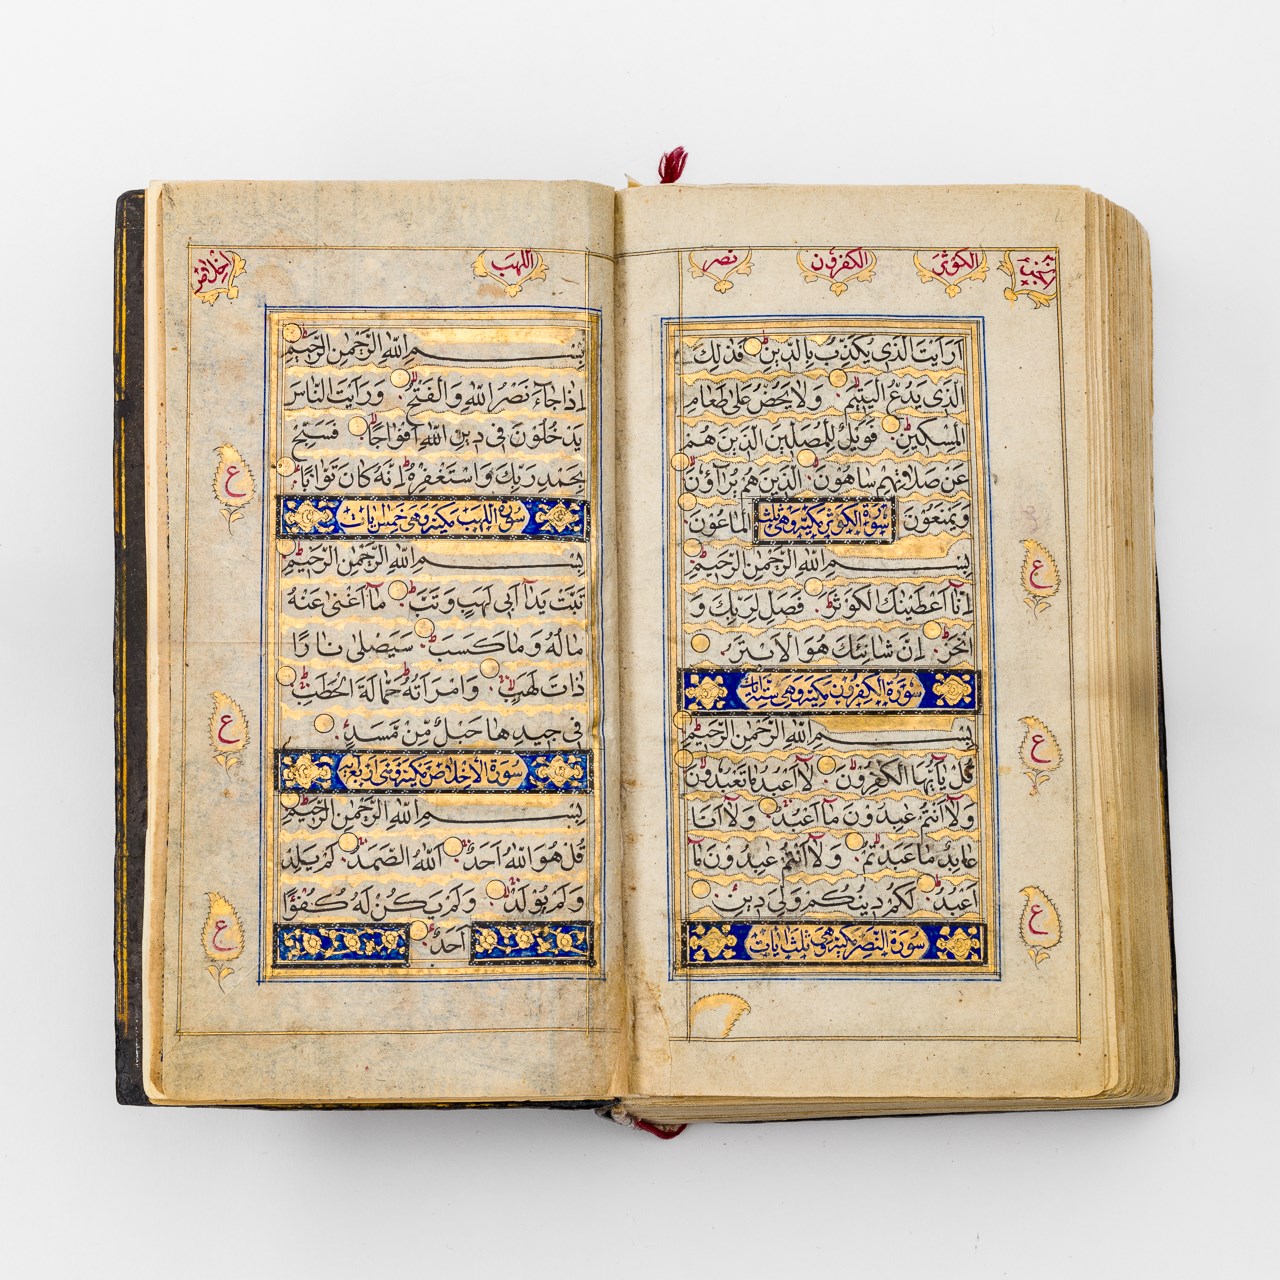 الكوثر
الكفرون
نصر
أرأيت الذي يكذب بالدين فذلك
الذي يدع اليتيم ولا يحض على طعام
المسكين فويل للمصلين الذين هم
عن صلاتهم ساهون الذين هم يراؤن
ويمنعون الماعون
سورة الكوثر مكية وهي ثلث
بسم الله الرحمن الرحيم
إنا أعطينك الكوثر فصل لربك و
انحر إن شانئك هو الأبتر
سورة الكفرون مكية وهي ست آيات
بسم الله الرحمن الرحيم
قل يأيها الكفرون لا أعبد ما تعبدون
ولا أنتم عبدون ما أعبد ولا أنا
عابد ما عبدتم ولا أنتم عبدون ما
أعبد لكم دينكم ولي دين
سورة النصر مكية وهي ثلث آيات
ع
ع
ع
اللهب
اخلاص
بسم الله الرحمن الرحيم
إذا جاء نصر الله والفتح ورأيت الناس
يدخلون في دين الله أفواجا فسبح
بحمد ربك واستغفره إنه كان توابا
سورة اللهب مكية وهي خمس آيات
بسم الله الرحمن الرحيم
تبت يدا أبي لهب وتب ما أغنى عنه
ماله وما كسب سيصلى نارا
ذات لهب وامرأته حمالة الحطب
في جيدها حبل من مسد
سورة الإخلاص مكية وهي أربع
بسم الله الرحمن الرحيم
قل هو الله أحد الله الصمد لم يلد
ولم يولد ولم يكن له كفوا
أحد
ع
ع
ع